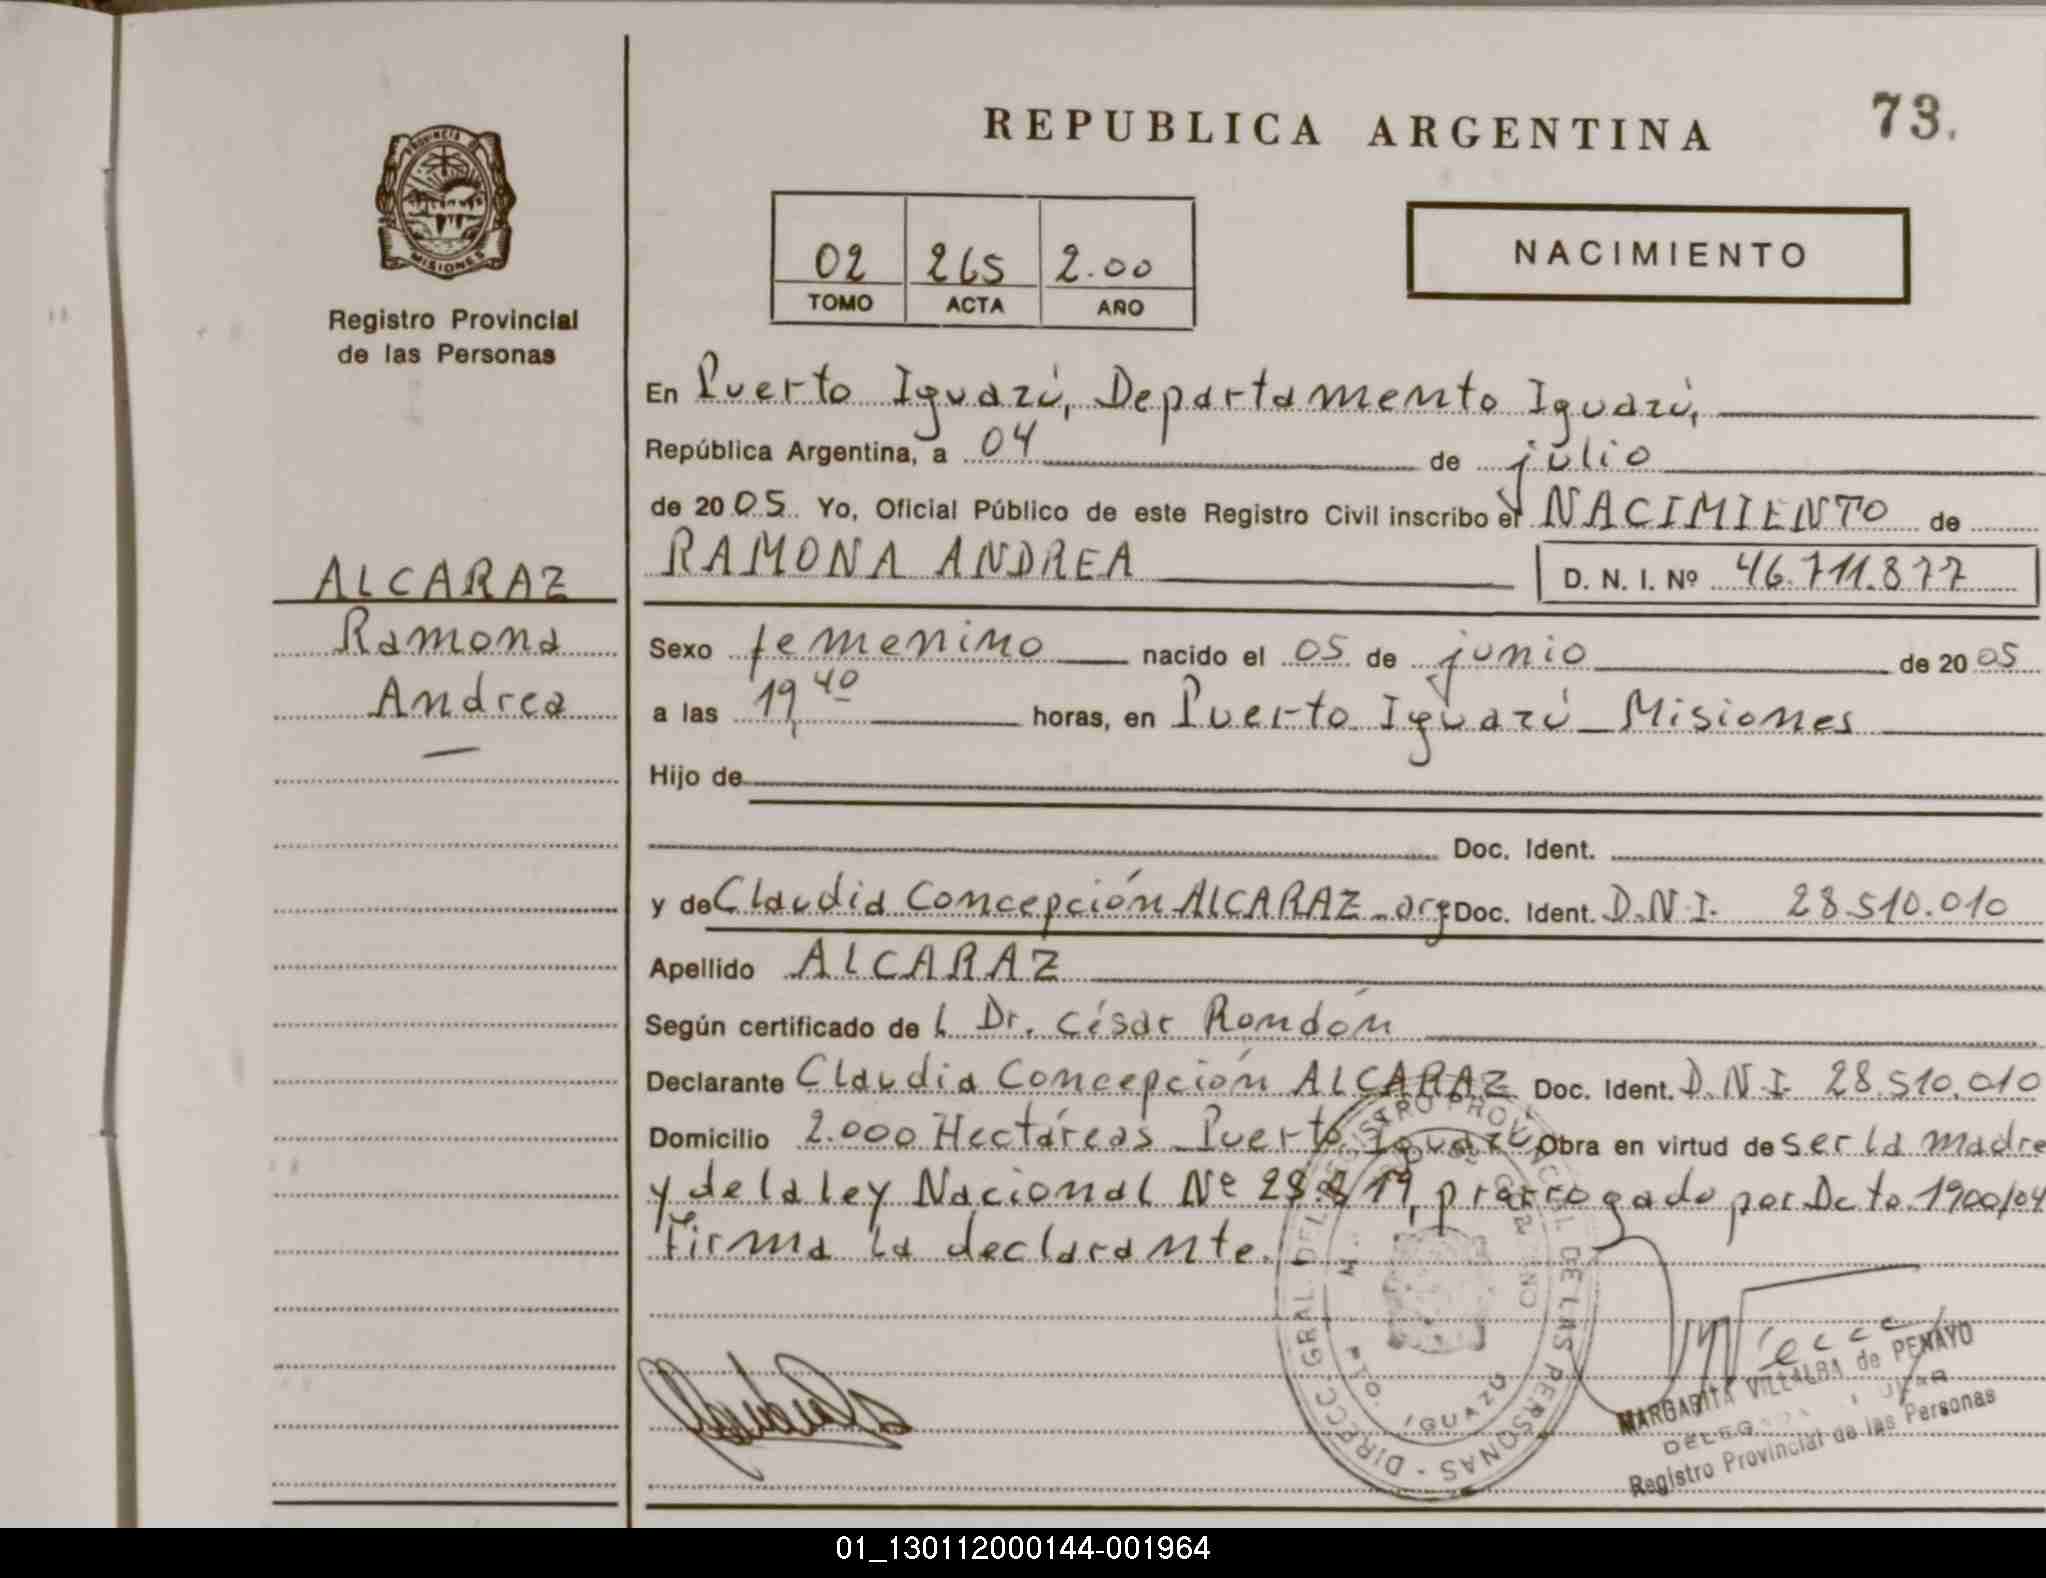 REPUBLICA ARGENTINA
73.
PROVINCIA DE
MISIONES
Registro Provincial
de las Personas
02 265 2.00
TOMO ACTA AÑO
NACIMIENTO
En Puerto Iguazú, Departamento Iguazú,
República Argentina, a 04 de julio
de 2005. Yo, Oficial Público de este Registro Civil inscribo el NACIMIENTO de
RAMONA ANDREA D. N. I. Nº 46.711.877
ALCARAZ
Ramona
Andrea
Sexo femenino nacido el 05 de junio de 2005
a las 19,40 horas, en Puerto Iguazú _ Misiones
Hijo de
Doc. Ident.
y de Claudia Concepción ALCARAZ _ arg Doc. Ident. D.N.I. 28.510.010
Apellido ALCARAZ
Según certificado de l Dr. César Rondón
Declarante Claudia Concepción ALCARAZ Doc. Ident. D.N.I. 28.510.010
Domicilio 2.000 Hectáreas _ Puerto Iguazú Obra en virtud de ser la madre
y de la ley Nacional Nº prorrogado por Dcto. 1900/04
Firma la declarante.
DIRECC. GRAL. DEL REGISTRO PROVINCIAL DE LAS PERSONAS
PTO. IGUAZU
MARGARITA VILLALBA de PENAYO
Registro Provincial de las Personas
01_130112000144-001964